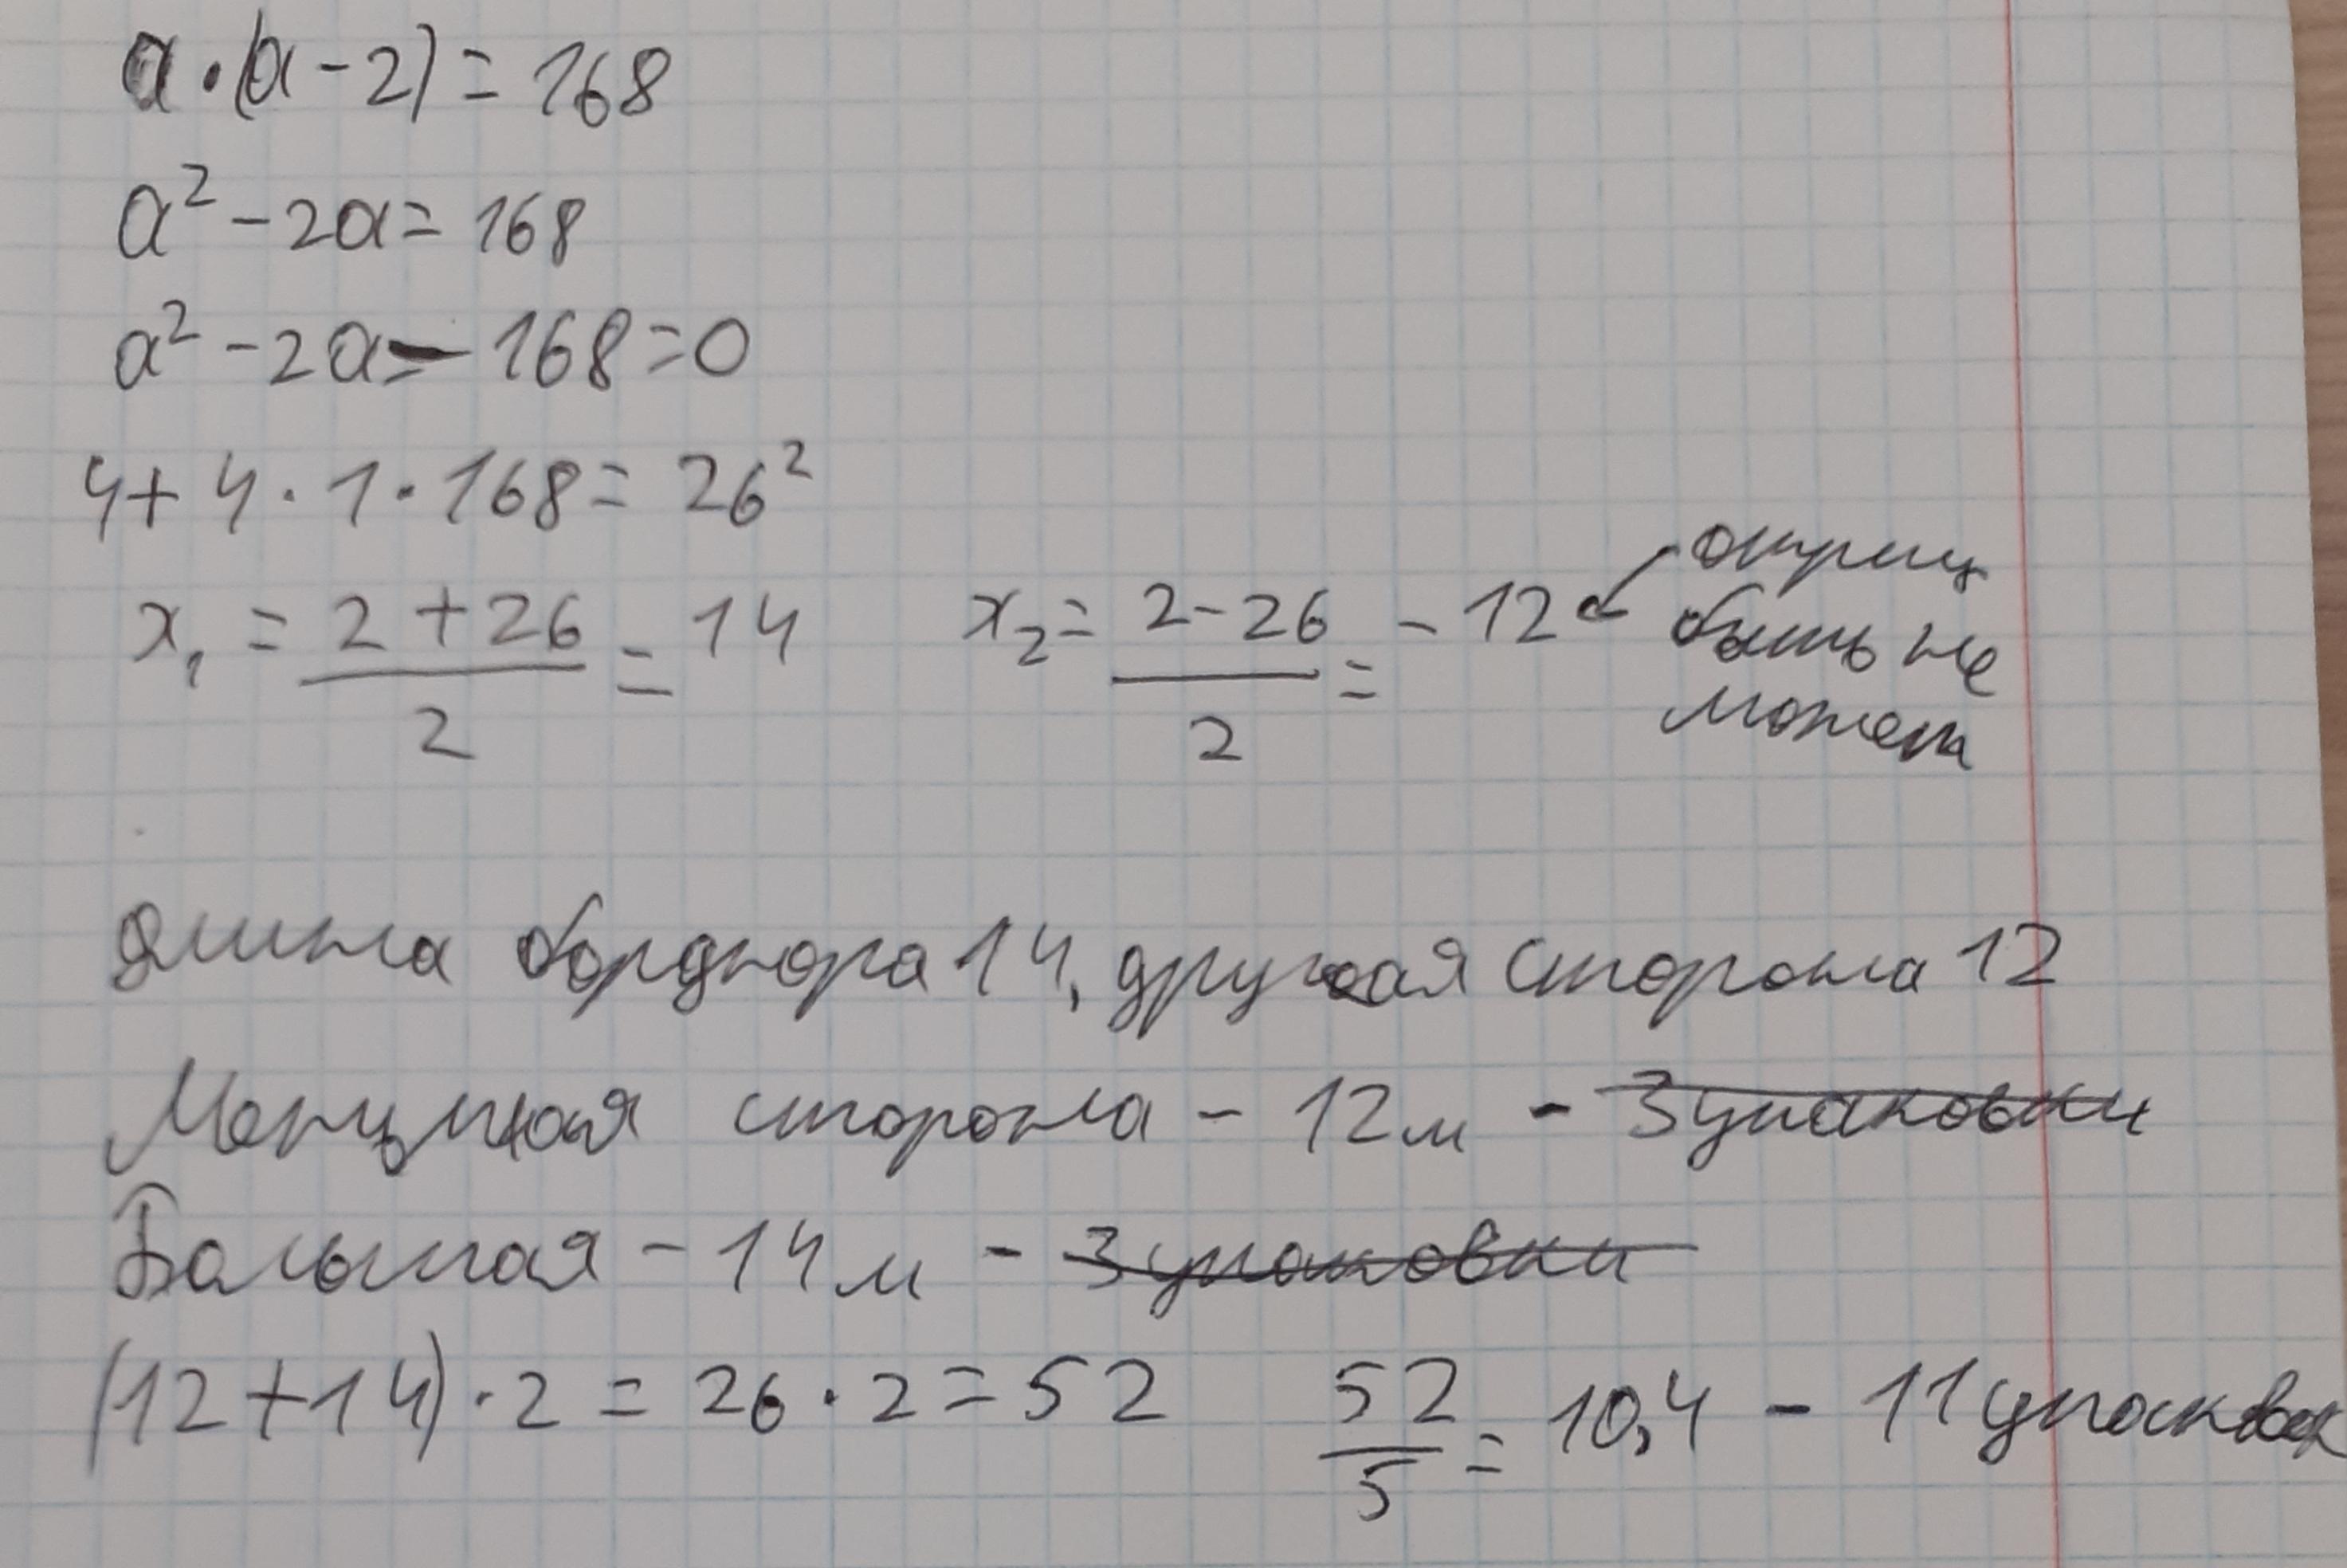 a·(a-2)=168
a²-2a=168
a²-2a-168=0
4+4·1·168=26²
x₁=(2+26)/2=14 x₂=(2-26)/2=-12
быть не
может
длина бордюра 14, другая сторона 12
сторона - 12м - 3 упаковки
Большая - 14м - 3 упаковки
(12+14)·2=26·2=52 52/5=10,4 - 11 упаковок